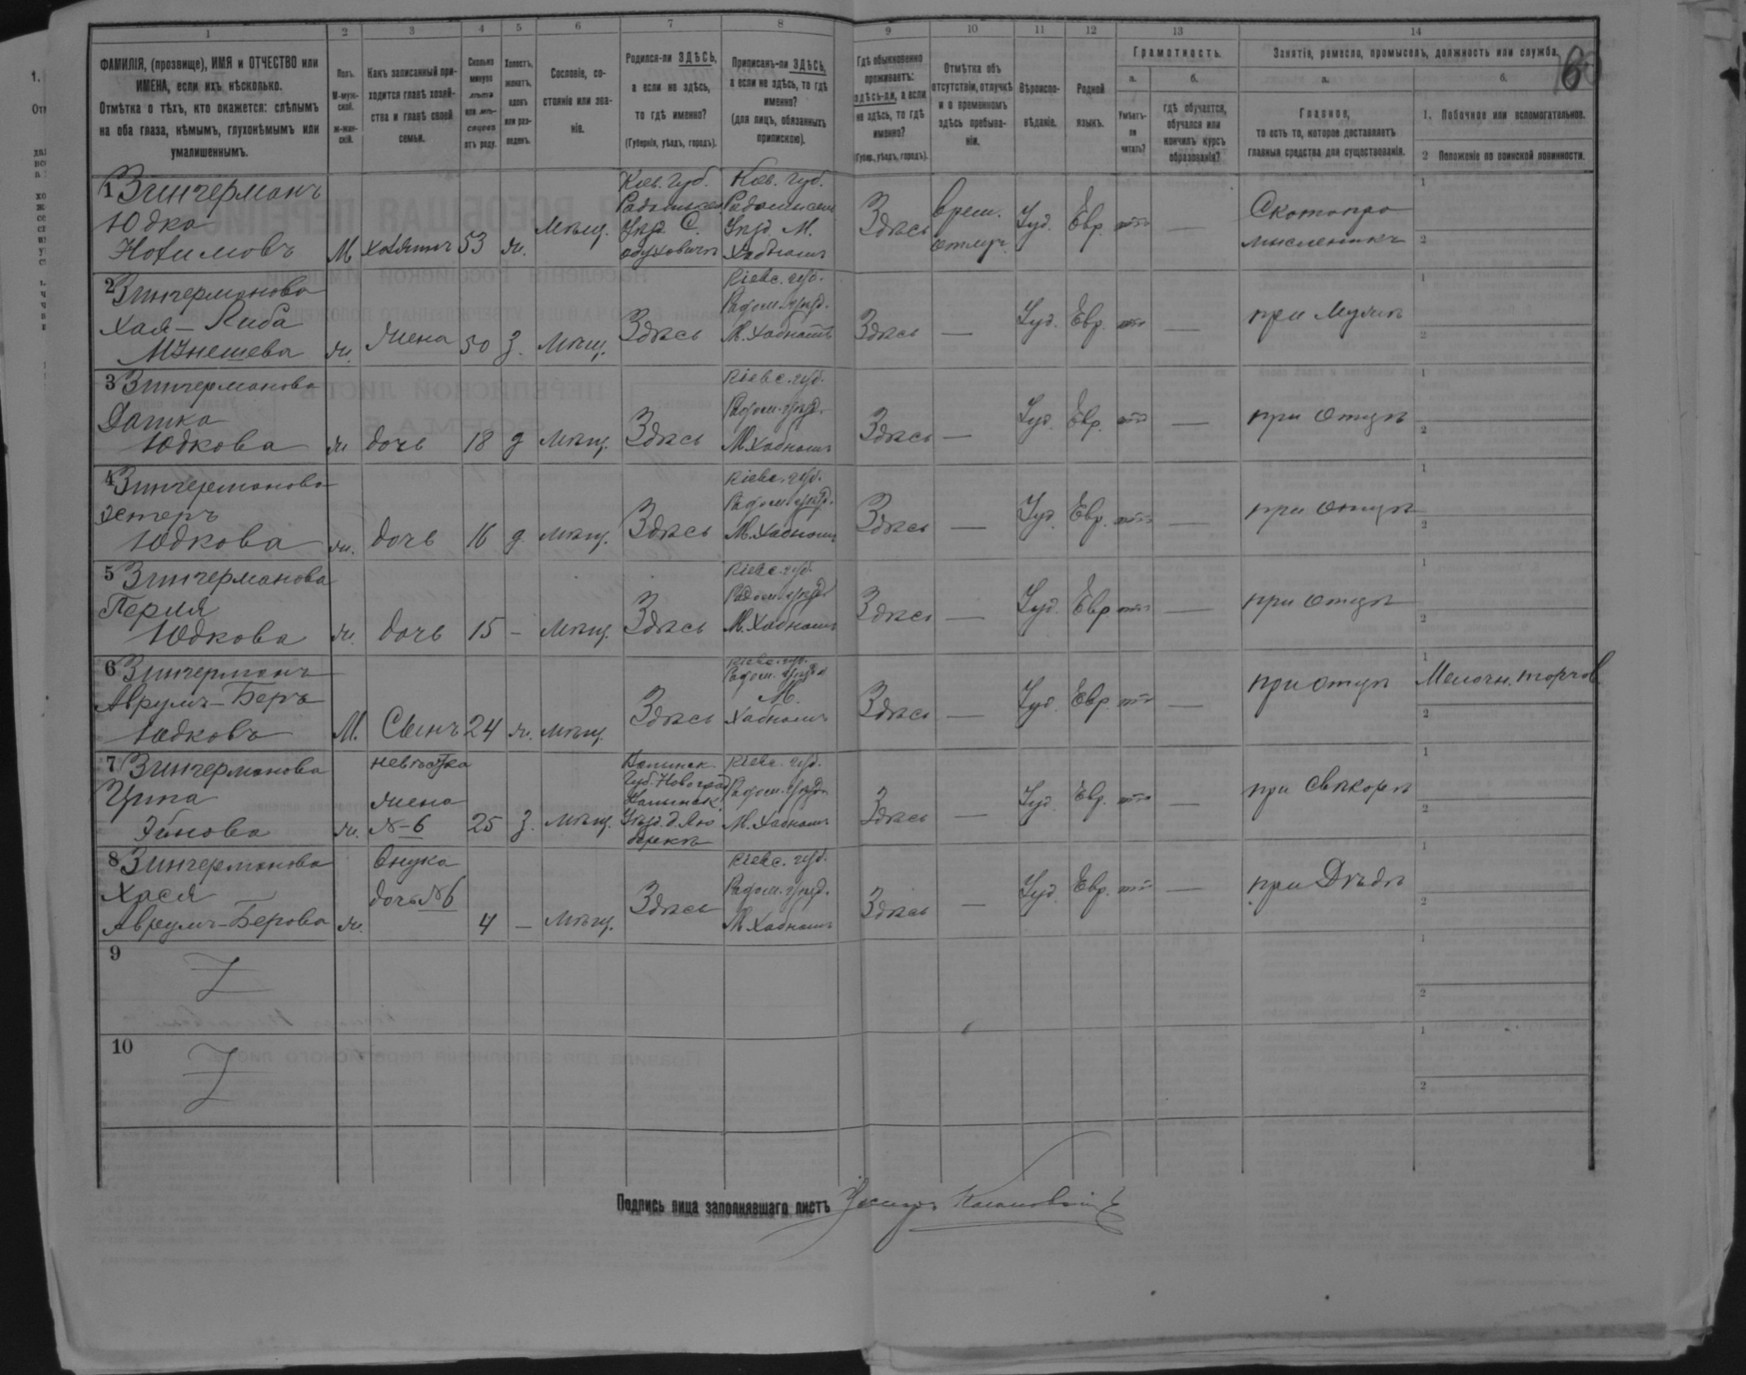 1 2 3 4 5 6 7 8 9 10 11 12 13 14
ФАМИЛІЯ, (прозвище), ИМЯ и ОТЧЕСТВО или
ИМЕНА, если ихъ нѣсколько.
Отмѣтка о тѣхъ, кто окажется: слѣпымъ
на оба глаза, нѣмымъ, глухонѣмымъ или
умалишеннымъ.
Полъ.
М-муж-
ской.
ж-жен-
скій.
Какъ записанный при-
ходится главѣ хозяй-
ства и главѣ своей
семьи.
Сколько
минуло
лѣтъ
или мѣ-
сяцевъ
отъ роду.
Холостъ,
женатъ,
вдовъ
или раз-
веденъ.
Сословіе, со-
стояніе или зва-
ніе.
Родился-ли ЗДѢСЬ,
а если не здѣсь,
то гдѣ именно?
(Губернія, уѣздъ, городъ).
Приписанъ-ли ЗДѢСЬ,
а если не здѣсь, то гдѣ
именно?
(для лицъ, обязанныхъ
припискою).
Гдѣ обыкновенно
проживаетъ:
здѣсь-ли, а если
не здѣсь, то гдѣ
именно?
(Губер., уѣздъ, городъ).
Отмѣтка объ
отсутствіи, отлучкѣ
и о временномъ
здѣсь пребыва-
ніи.
Вѣроиспо-
вѣданіе.
Родной
языкъ.
Грамотность.
а.
Умѣетъ-
ли
читать?
б.
гдѣ обучается,
обучался или
кончилъ курсъ
образованія?
Занятія, ремесло, промыселъ, должность или служба.
а.
Главное,
то есть то, которое доставляетъ
главныя средства для существованія.
б.
1. Побочное или вспомогательное.
2 Положеніе по воинской повинности.
1 Зингерманъ
Юдко
М 53 ж. Мѣщ.
Кіев. губ.
Кіев. губ.
Уѣзд. М.
Хабное
Здѣсь
врем.
отлуч.
Іуд. Евр —
Скотопро
мысленникъ
1
2
2 Зингерманова
Хая-Либа
ж. жена 50 З. Мѣщ. Здѣсь
Кіевс. губ.
Радом. уѣзд.
М. Хабное
Здѣсь — Іуд. Евр. — при мужѣ
1
2
3 Зингерманова
Юдкова
ж дочь 18 д мѣщ. Здѣсь
Кіевс. губ.
Радом. уѣзд.
М. Хабное
Здѣсь — Іуд. Евр. — при отцѣ
1
2
4 Зингерманова
Эстеръ
Юдкова
ж. дочь 16 д мѣщ. Здѣсь
Кіевс. губ.
Радом. уѣзд.
М. Хабное
Здѣсь — Іуд. Евр. — при отцѣ
1
2
5 Зингерманова
Перля
Юдкова
ж. дочь 15 – мѣщ. Здѣсь
Кіевс. губ.
Радом. уѣзд
М. Хабное
Здѣсь — Іуд. Евр — при отцѣ
1
2
6 Зингерманъ
Аврумъ-Беръ
Юдковъ
М. Сынъ 24 ж. мѣщ. Здѣсь
Кіевс. губ.
Радом. уѣзд
М.
Хабное
Здѣсь — Іуд. Евр — при отцѣ
1
2
7 Зингерманова
ж.
невѣстка
жена
№ 6
25 З. мѣщ.
Кіевс. губ.
Радом. уѣзд.
М. Хабное
Здѣсь — Іуд. Евр. — при свѣкорѣ
1
2
8 Зингерманова
Хася
Аврумъ-Берова
ж.
внука
дочь № 6
4 – мѣщ. Здѣсь
Кіевс. губ.
Радом. уѣзд.
М. Хабное
Здѣсь — Іуд. Евр. — при Дѣдѣ
1
2
9
1
2
10
1
2
Подпись лица заполнявшаго листъ